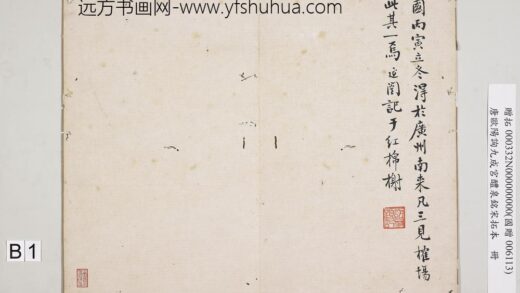 远方书画网-www.yfshuhua.com
國丙寅立冬得於廣州南来凡三見榷場
此其一焉 记于红棉榭
贈拓 000332N000000000(國贈 006113)
唐歐陽詢九成宮醴泉銘宋拓本 冊
B 1